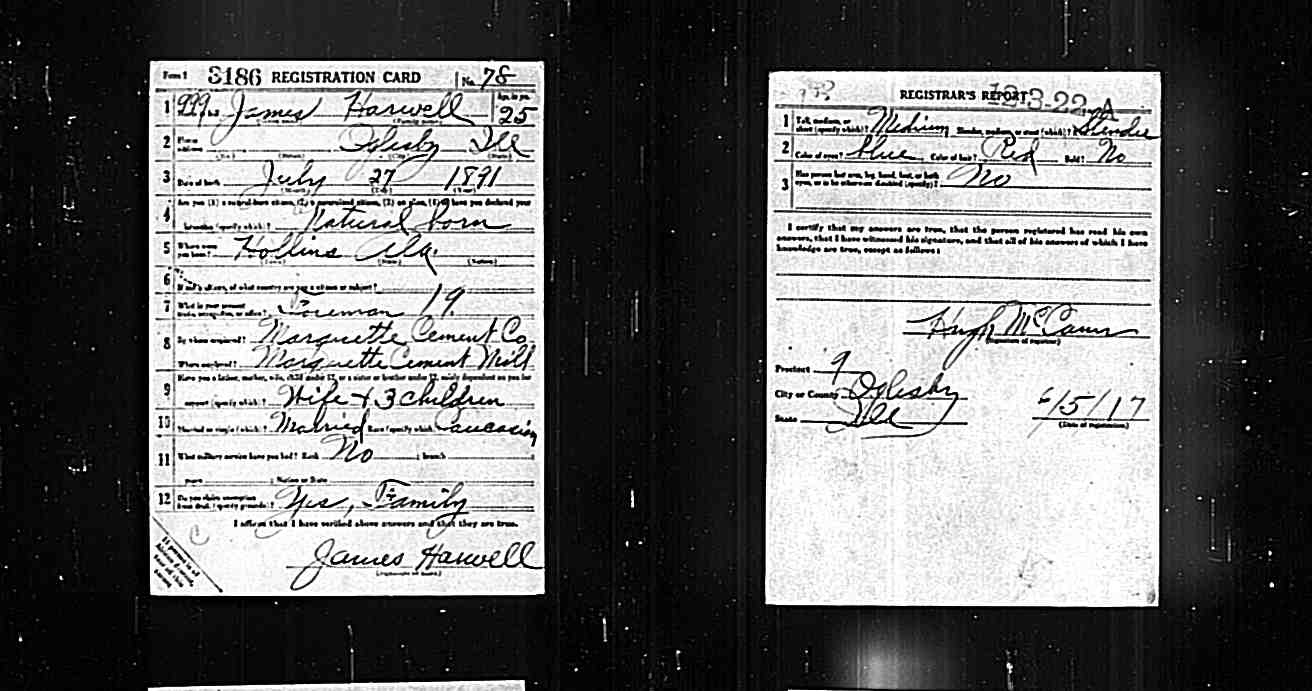 Form 1 3186 REGISTRATION CARD No. 78
1 999 James Harwell Age, in yrs. 25
(Family name)
2 Home address Oglesby Ill
(No.) (Street) (City) (State)
3 Date of birth July 27 1891
(Month) (Day) (Year)
Are you (1) a natural-born citizen, (2) a naturalized citizen, (3) an alien, (4) or have you declared your
4 intention (specify which)? Natural born
5 Where were you born? Hollins Ala.
(Town) (State) (Nation)
6 If not a citizen, of what country are you a citizen or subject?
7 What is your present trade, occupation, or office? Foreman 19
8 By whom employed? Marquette Cement Co
Where employed? Marquette Cement Mill
9 Have you a father, mother, wife, child under 12, or a sister or brother under 12, solely dependent on you for
support (specify which)? Wife + 3 children
10 Married or single (which)? Married Race (specify which)? Caucasian
11 What military service have you had? Rank No ; branch
years ; Nation or State
12 Do you claim exemption from draft (specify grounds)? Yes, Family
I affirm that I have verified above answers and that they are true.
C
James Harwell
(Signature or mark)
REGISTRAR'S REPORT 12-3-22-A
1 Tall, medium, or short (specify which)? Medium Slender, medium, or stout (which)? Slender
2 Color of eyes? blue Color of hair? Red Bald? No
3 Has person lost arm, leg, hand, foot, or both eyes, or is he otherwise disabled (specify)? No
I certify that my answers are true, that the person registered has read his own
answers, that I have witnessed his signature, and that all of his answers of which I have
knowledge are true, except as follows:
Hugh McCann
(Signature of registrar)
Precinct 9
City or County Oglesby
State Ill
6/5/17
(Date of registration)